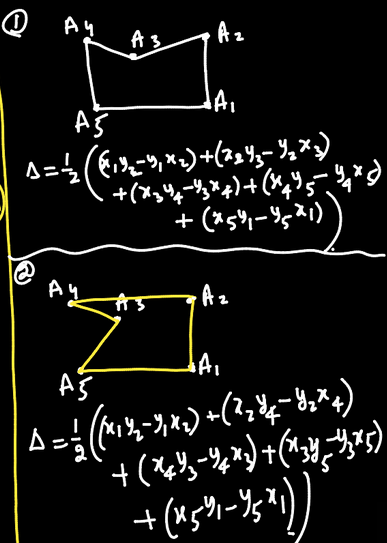 ①
A4 A3 A2
A5 A1
Δ=1/2((x1y2-y1x2)+(x2y3-y2x3)
+(x3y4-y3x4)+(x4y5-y4x5)
+(x5y1-y5x1))
②
A4 A3 A2
A5 A1
Δ=1/2((x1y2-y1x2)+(x2y4-y2x4)
+(x4y3-y4x3)+(x3y5-y3x5)
+(x5y1-y5x1))